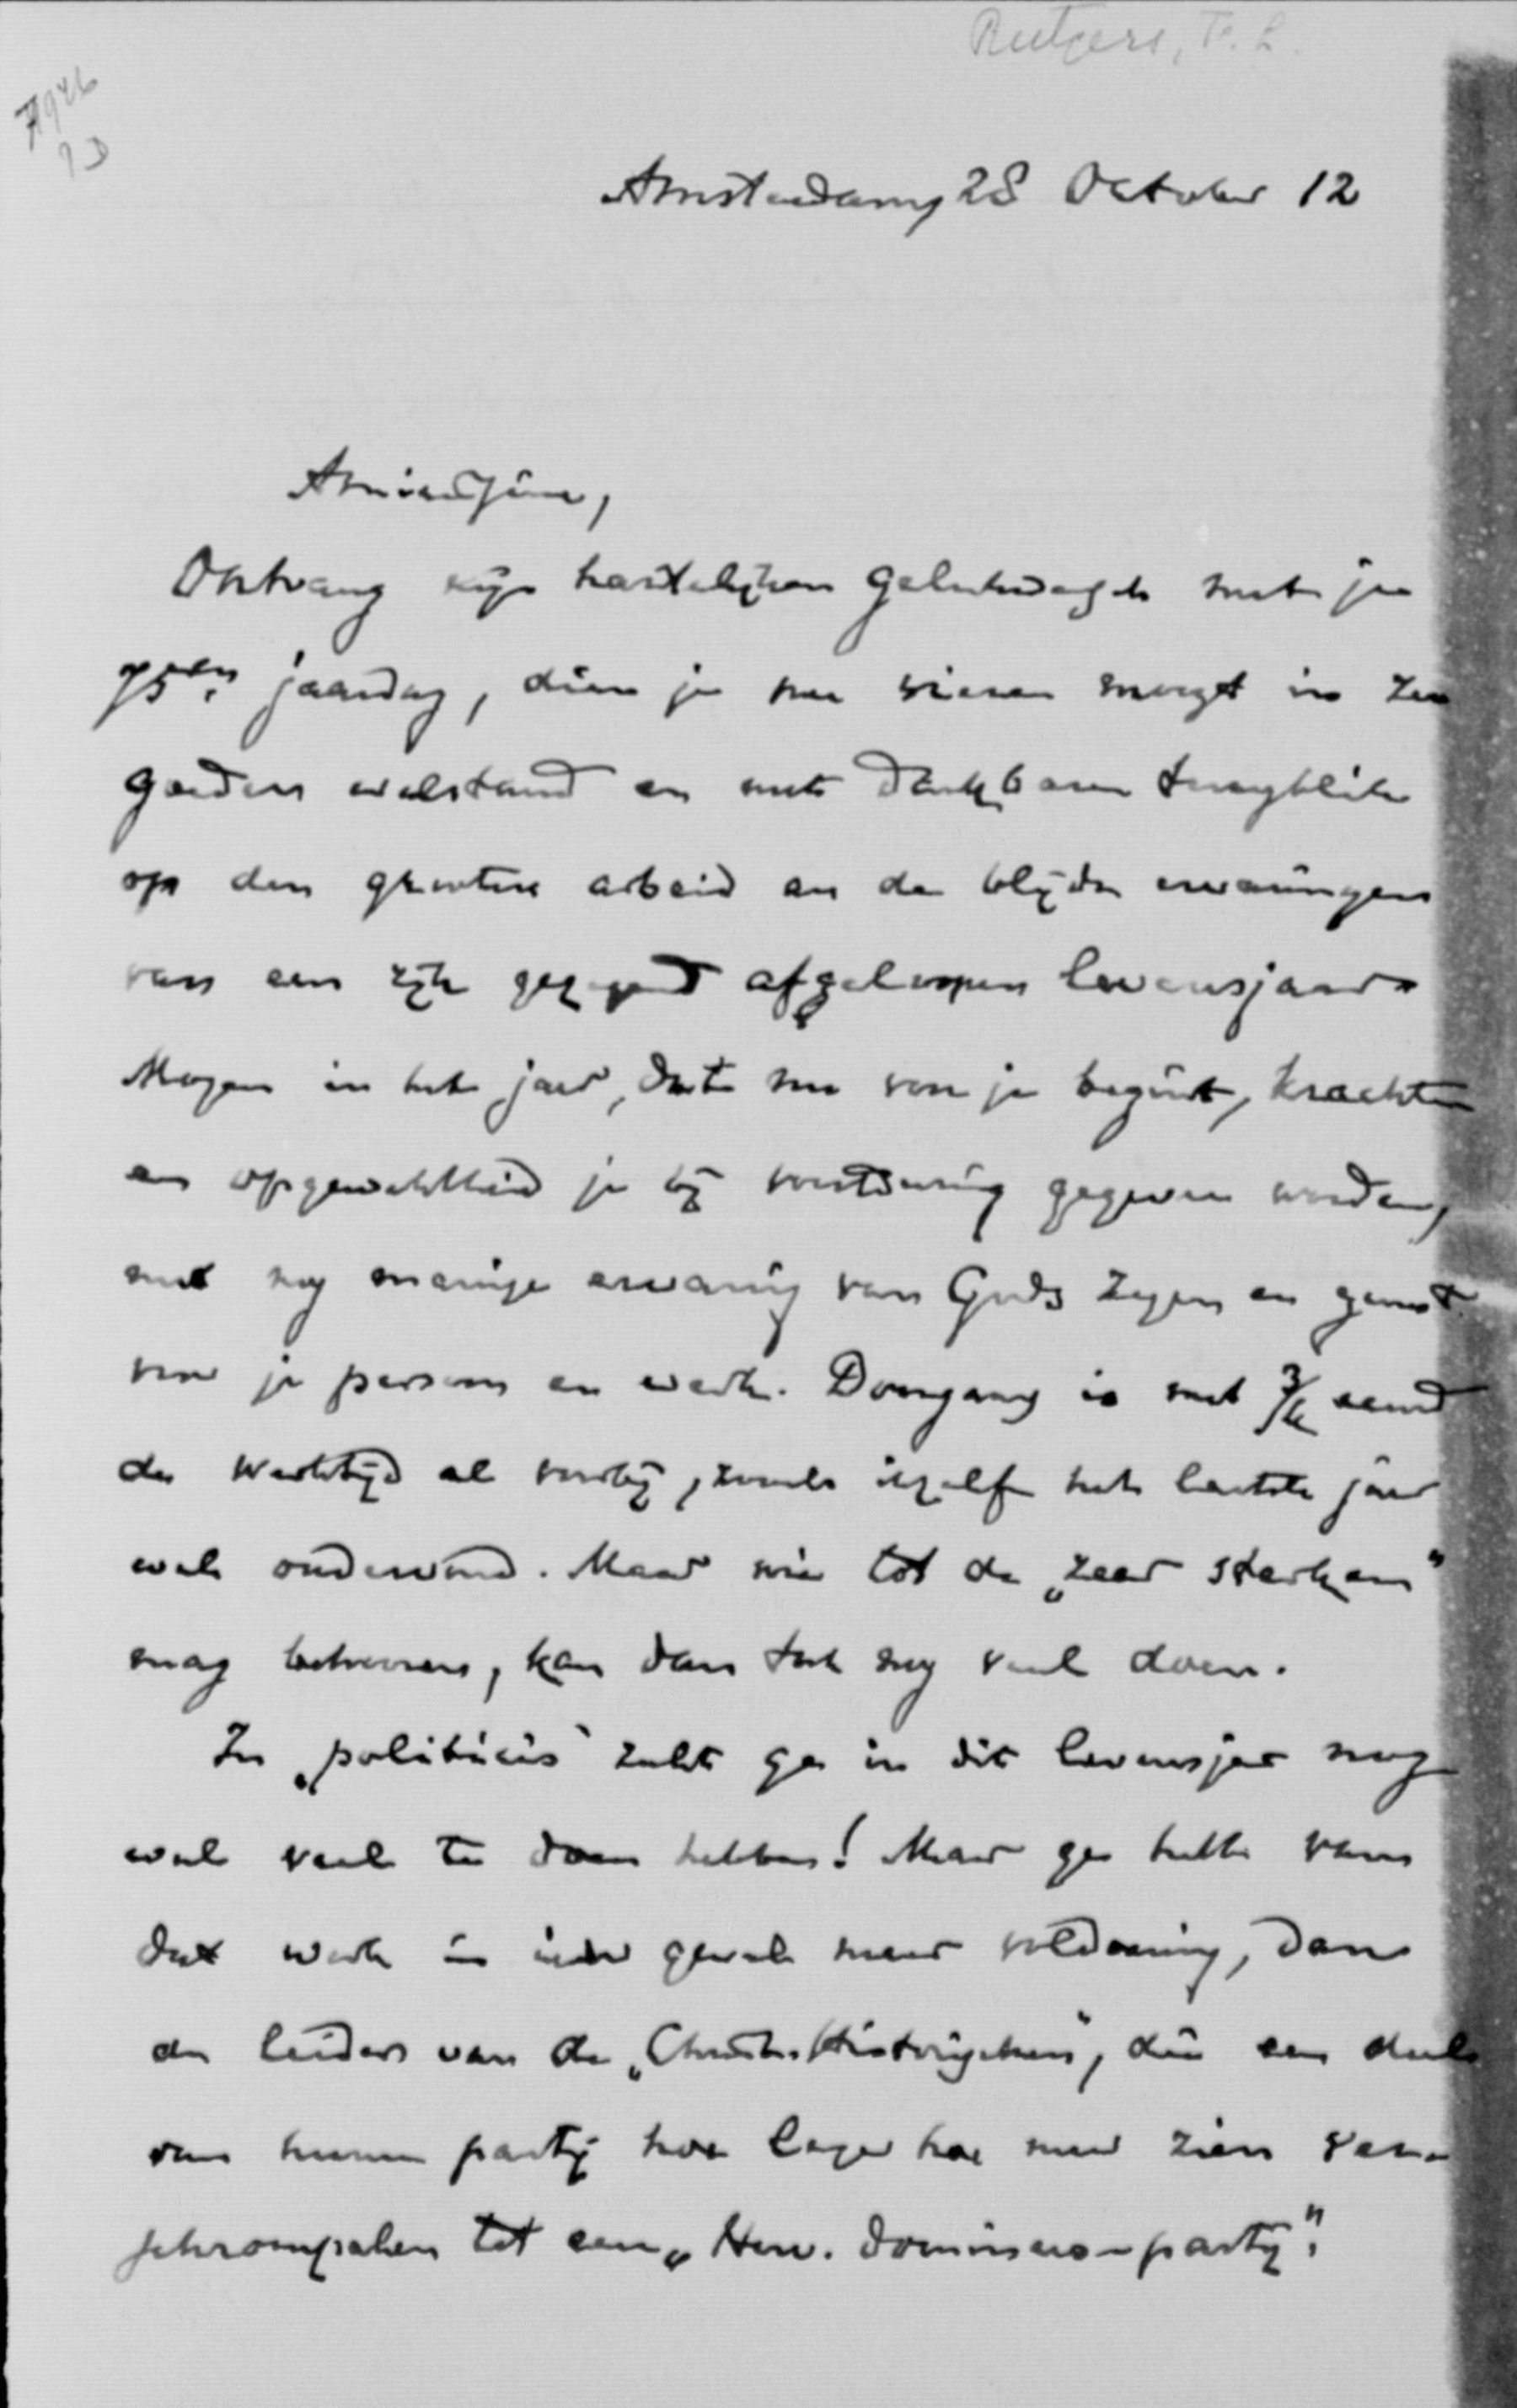 Rutgers, F. L.
7946
Amsterdam, 28 October 12
Amicissime,
Ontvang mijn hartelijken gelukwensch met je
75sten jaardag, dien je nu vieren moogt in zoo
goeden welstand en met dankbaren terugblik
op den grooten arbeid en de blijde ervaringen
van een rijk gezegend afgeloopen levensjaar.
Mogen in het jaar, dat nu voor je begint, krachten
en opgewektheid je bij voortduring gegeven worden,
met nog menige ervaring van Gods zegen en gunst
voor je persoon en werk. Doorgaans is met 3/4 eeuw
de werktijd al voorbij, zooals ikzelf het laatste jaar
wel ondervond. Maar wie tot de „zeer sterken"
mag behooren, kan dan toch nog veel doen.
In „politicis" zult ge in dit levensjaar nog
wel veel te doen hebben! Maar ge hebt van
dat werk in ieder geval meer voldoening, dan
de leiders van de „Christ. Historischen", die een deel
van hunne partij hoe langer hoe meer zien ver-
schrompelen tot een „Herv. dominees-partij".